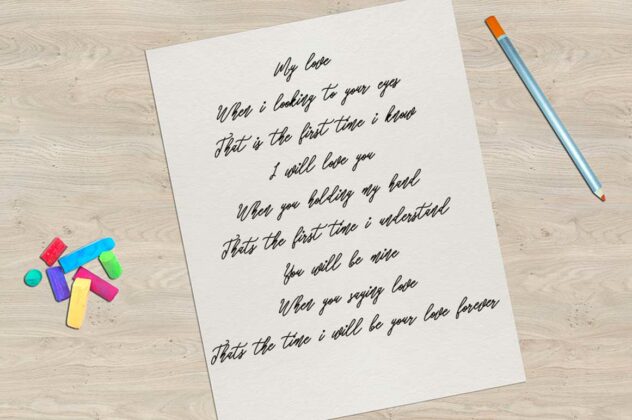 My love
When i looking to your eyes
That is the first time i know
I will love you
When you holding my hand
Thats the first time i understand
You will be mine
When you saying love
Thats the time i will be your love forever